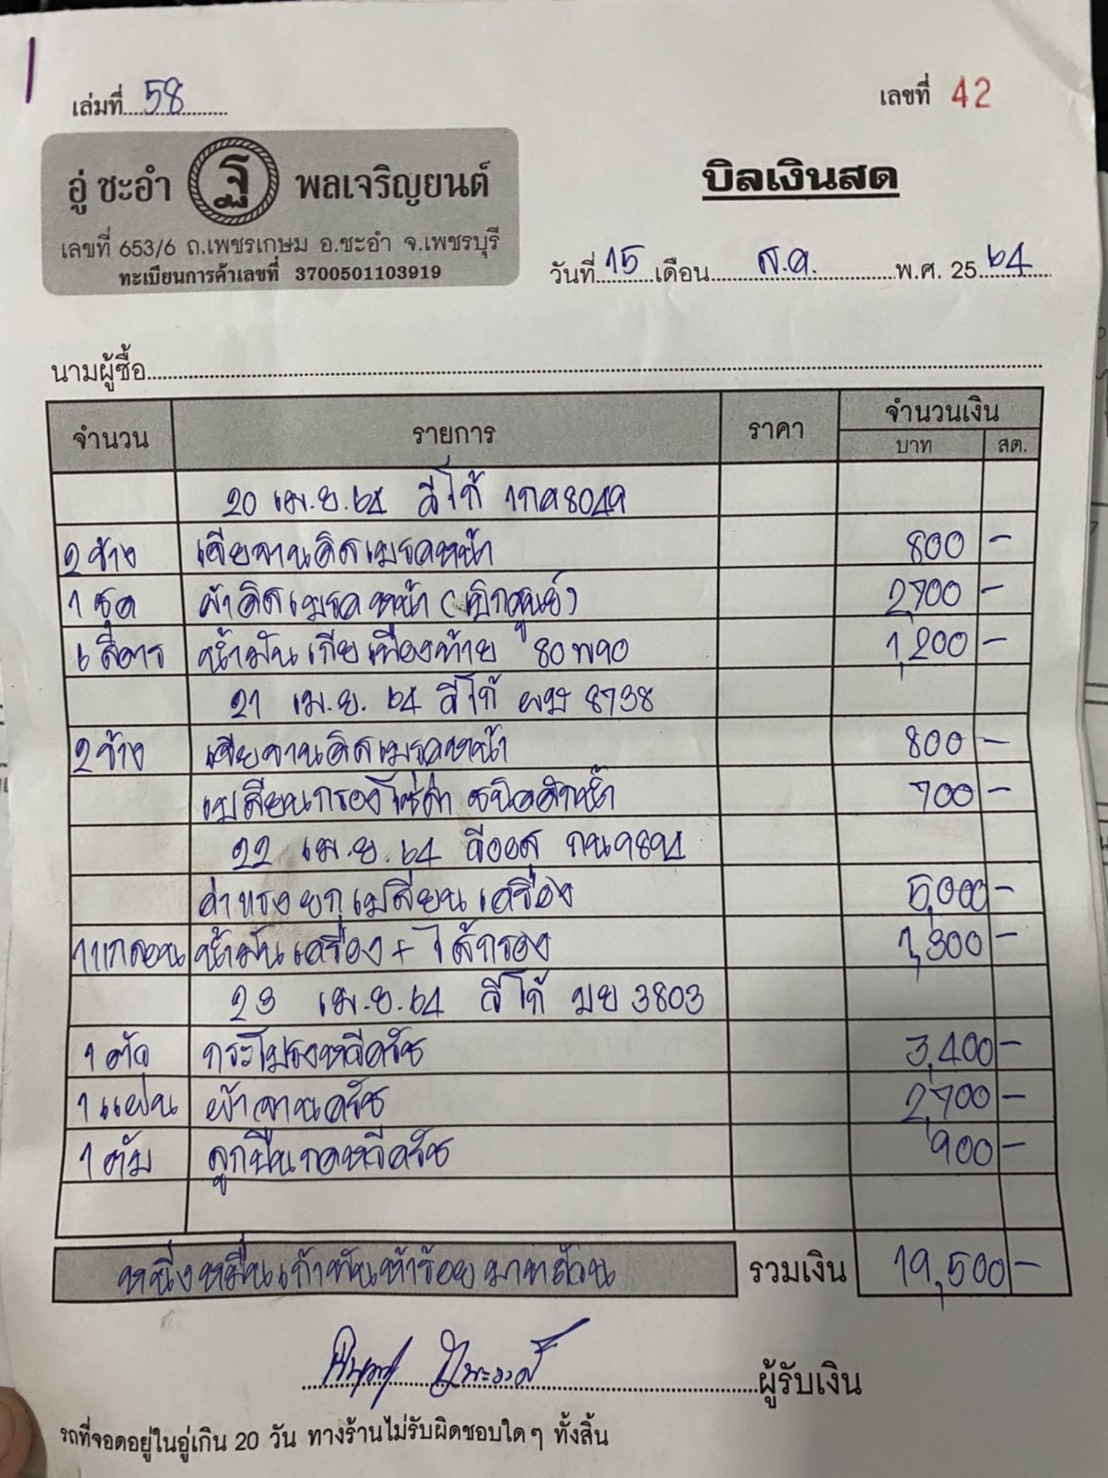 เล่มที่ 58
เลขที่ 42
อู่ ชะอำ ฐ พลเจริญยนต์
เลขที่ 653/6 ถ.เพชรเกษม อ.ชะอำ จ.เพชรบุรี
ทะเบียนการค้าเลขที่ 3700501103919
บิลเงินสด
วันที่ 15 เดือน ส.ค. พ.ศ. 25 64
นามผู้ซื้อ
จำนวน รายการ ราคา จำนวนเงิน
บาท สต.
20 เม.ย. 64 อีโก้ 1กค8049
2 ข้าง เจียจานดิสเบรคหน้า 800 -
1 ชุด ผ้าดิสเบรคหน้า (เบิกศูนย์) 2,700 -
6 ลิตร น้ำมันเกียเฟืองท้าย 80W90 1,200 -
21 เม.ย. 64 อีโก้ ผษ 8738
2 ข้าง เจียจานดิสเบรคหน้า 800 -
เปลี่ยนกรองโซล่า ชนิดดักน้ำ 700 -
22 เม.ย. 64 อีซูซุ กน9894
ค่าแรงยกเปลี่ยนเครื่อง 5,000 -
1แกลอน น้ำมันเครื่อง + ไส้กรอง 1,300 -
23 เม.ย. 64 อีโก้ บย 3803
1 ตัว กระโปรงหวีครัช 3,400 -
1 แผ่น ผ้าจานครัช 2,700 -
1 ตับ ลูกปืนกดหวีครัช 900 -
หนึ่งหมื่นเก้าพันห้าร้อยบาทถ้วน รวมเงิน 19,500 -
ผู้รับเงิน
รถที่จอดอยู่ในอู่เกิน 20 วัน ทางร้านไม่รับผิดชอบใดๆ ทั้งสิ้น